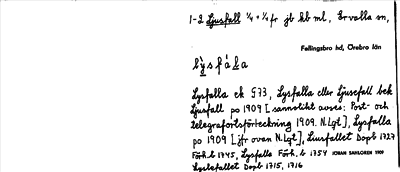 1-2 Ljusfall ¼ + ¼ fr jb kb ml, Ervalla sn,
Fellingsbro hd, Örebro län
lỳsfåla
Lysfalla ek G33, Lysfalla eller Ljusefall bek
Ljusfall po 1909 [samolikt avses: Post- och
telegrafortsförteckning 1909. N.Lgt], Lysfalla
po 1909 [jfr ovan N.Lgt], Liusfallet Dopb 1727
Förh.b 1745, Lysfalla Förh.b 1754 JÖRAN SAHLGREN 1909
Lysefallet Dopb 1715, 1716